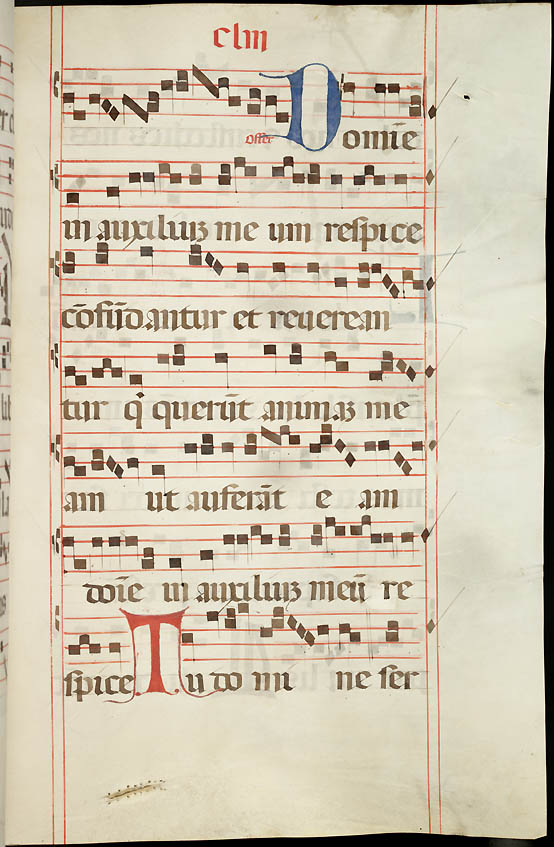 clm
offer
Domīe
in auxiliuz me um respice
cōfūdantur et reuerean
tur q̄ querūt animaz me
am ut auferāt e am
doīe in auxiliuz meū re
spice. Tu do mi ne ser